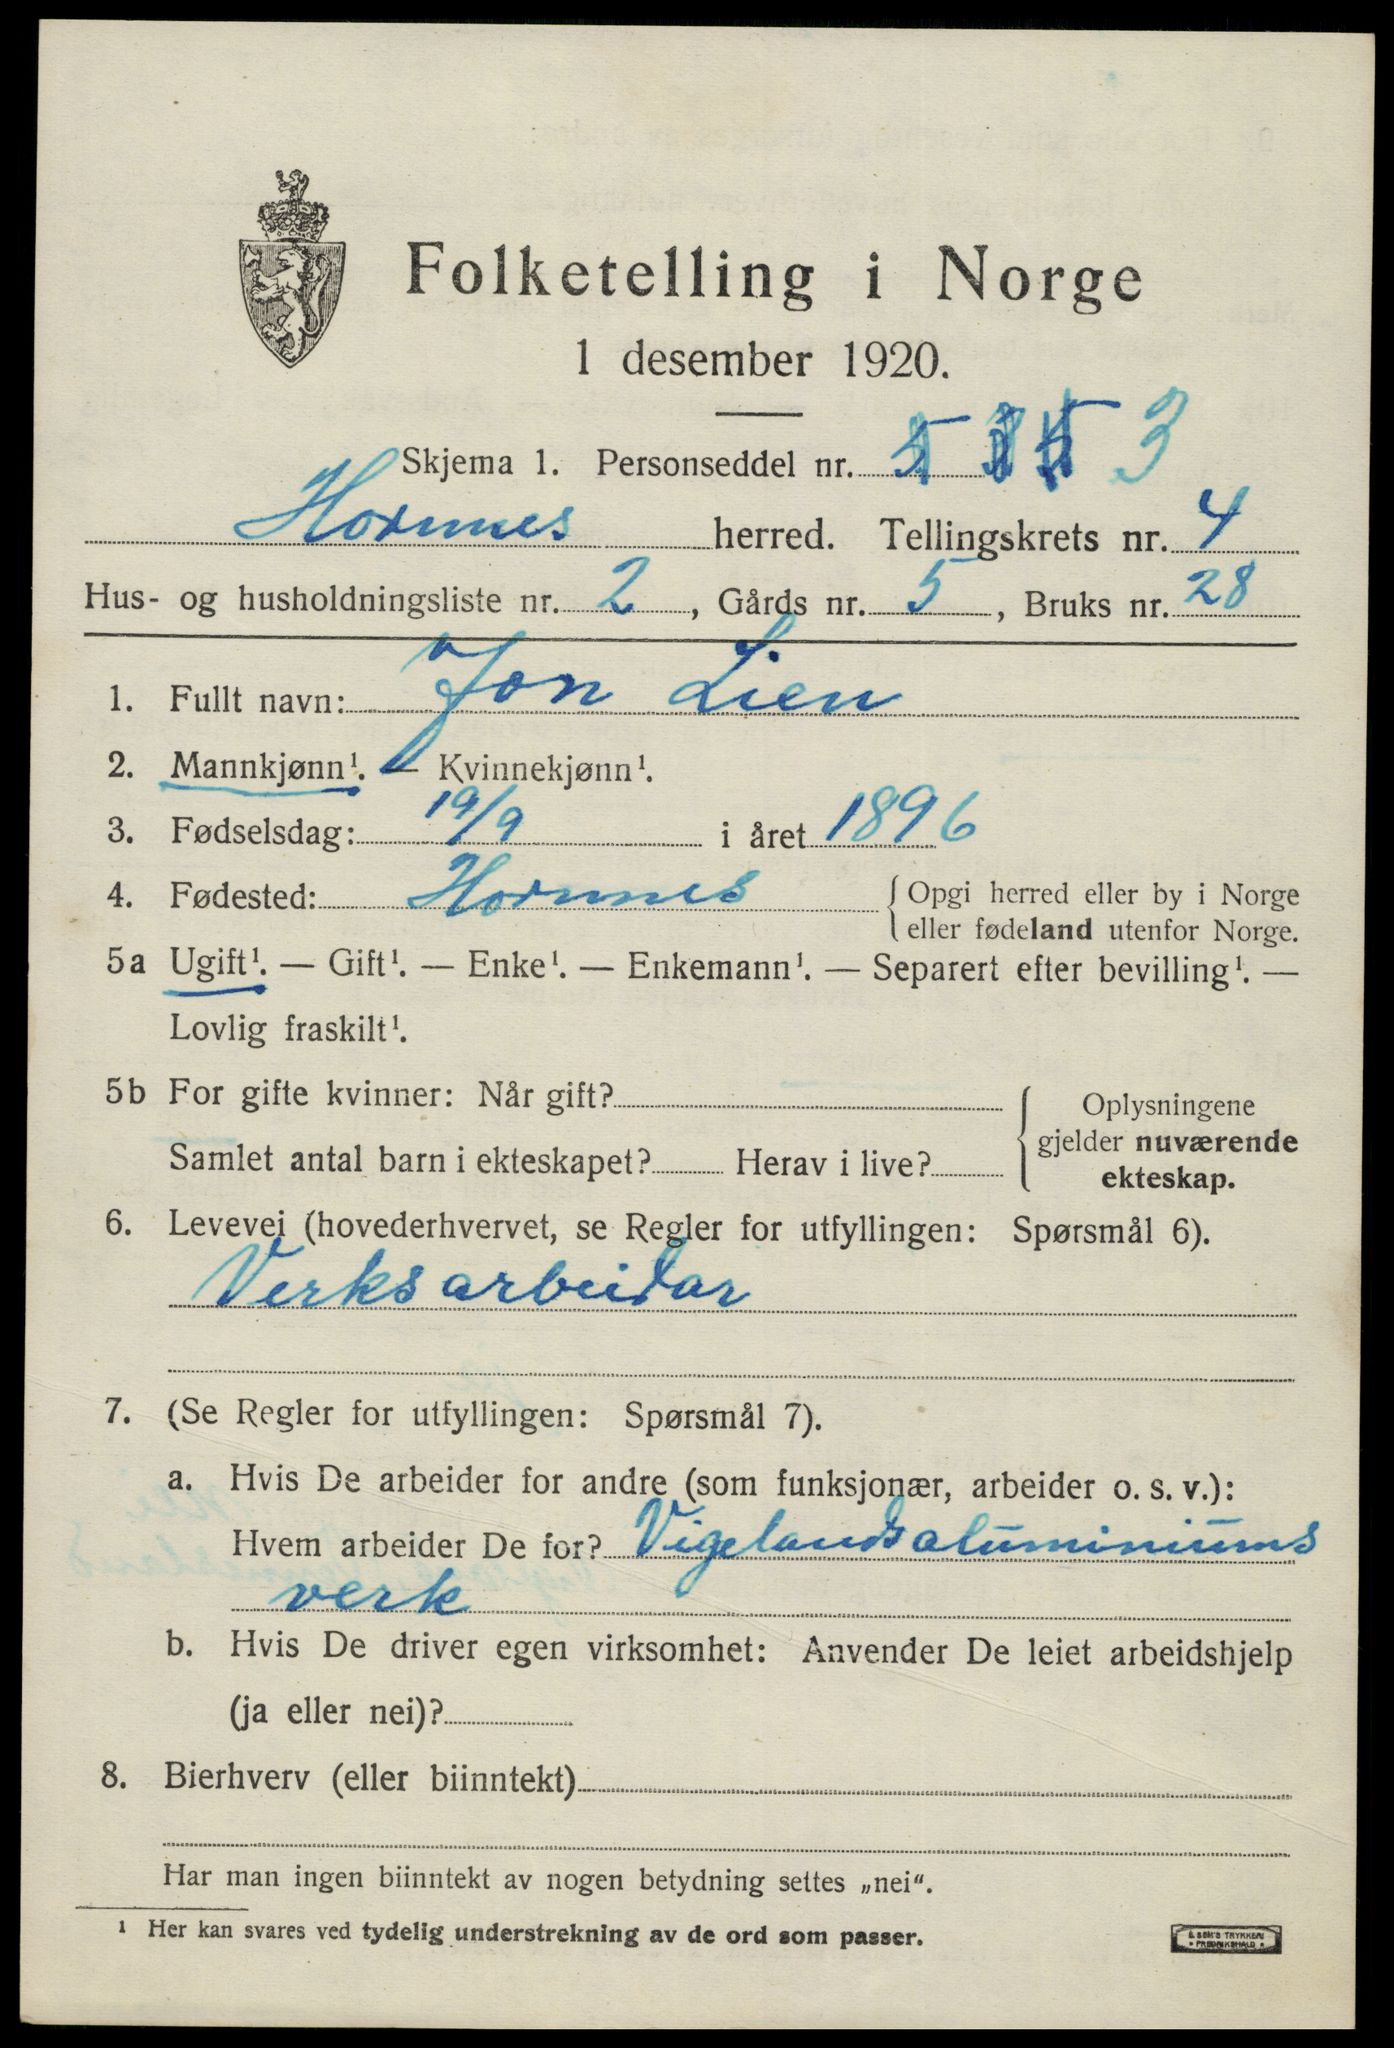 Folketelling i Norge
1 desember 1920.
Skjema 1. Personseddel nr. 3
Hornnes herred. Tellingskrets nr. 4
Hus- og husholdningsliste nr. 2, Gårds nr. 5, Bruks nr. 28
1. Fullt navn: Jon Lien
2. Mannkjønn¹. — Kvinnekjønn¹.
3. Fødselsdag: 19/9 i året 1896
4. Fødested: Hornnes { Opgi herred eller by i Norge
eller fødeland utenfor Norge.
5a Ugift¹. — Gift¹. — Enke¹. — Enkemann¹. — Separert efter bevilling¹. —
Lovlig fraskilt¹.
5b For gifte kvinner: Når gift? { Oplysningene
gjelder nuværende
Samlet antal barn i ekteskapet? Herav i live? ekteskap.
6. Levevei (hovederhvervet, se Regler for utfyllingen: Spørsmål 6).
Verksarbeidar
7. (Se Regler for utfyllingen: Spørsmål 7).
a. Hvis De arbeider for andre (som funksjonær, arbeider o. s. v.):
Hvem arbeider De for? Vigelandsaluminiums
verk
b. Hvis De driver egen virksomhet: Anvender De leiet arbeidshjelp
(ja eller nei)?
8. Bierhverv (eller biinntekt)
Har man ingen biinntekt av nogen betydning settes „nei“.
¹ Her kan svares ved tydelig understrekning av de ord som passer.
E. SEM'S TRYKKERI
• FREDRIKSHALD •